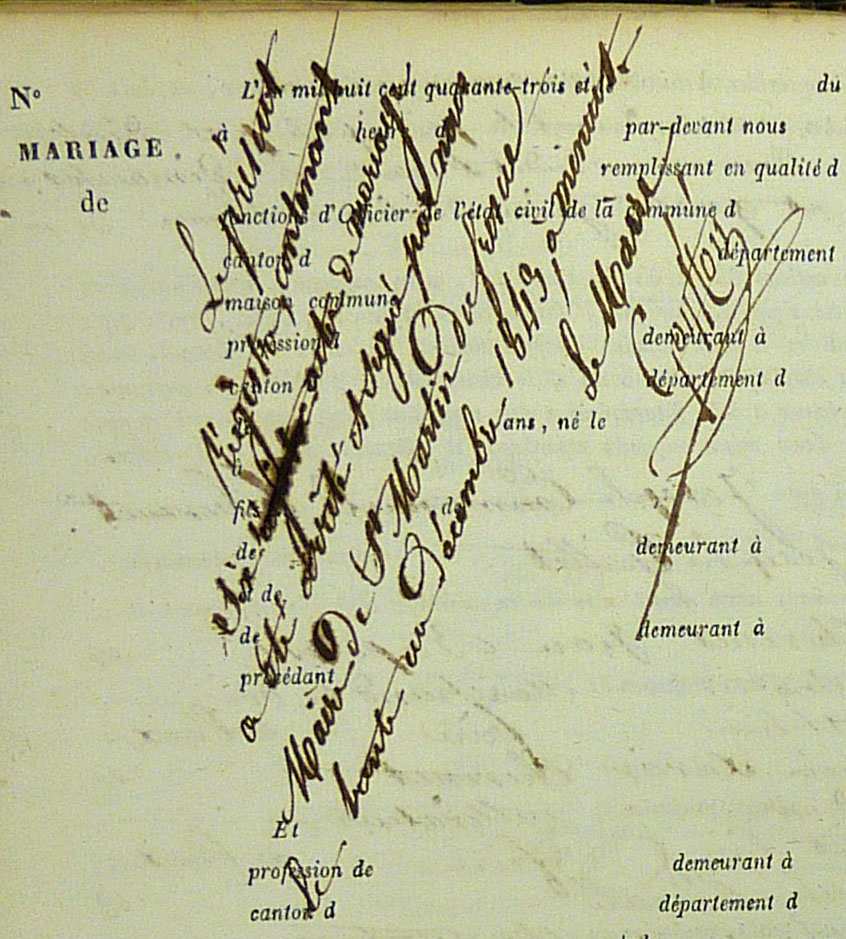 N°
MARIAGE
de
L'an mil huit cent quarante-trois et le du
à heure d par-devant nous
remplissant en qualité d
fonctions d'Officier de l'état civil de la commune d
canton d département
maison commune
profession d demeurant à
canton département d
ans, né le
fils d
de demeurant à
et de
de demeurant à
procédant
Et
profession de demeurant à
canton d département d
Le présent
Régistre contenant
Six actes de mariage
a été clôturé et signé par nous
Maire de St Martin du
le trente un Décembre 1843, à menuit.
Le Maire,